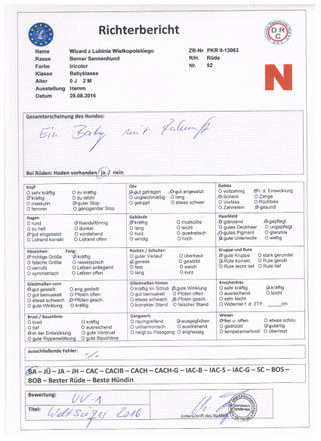 Richterbericht
DRC
Name Wizard z Lubinia Wielkopolskiego ZB-Nr PKR II-13063
Rasse Berner Sennenhund R/H Rüde
Farbe tricolor Nr. 92
Klasse Babyklasse
Alter 0 J 2 M
Ausstellung Hamm
Datum 28.08.2016
N
Gesamterscheinung des Hundes:
Ein Baby mit Zukunft
Bei Rüden: Hoden vorhanden ja / nein
Kopf Ohr Gebiss
sehr kräftig zu kräftig gut getragen gut angesetzt vollzahnig i. d. Entwicklung
kräftig zu leicht ungleichmäßig lang Schere Zange
maskulin guter Stop gekippt etwas schwer Vorbiss Rückbiss
feminin genügender Stop Zahnstein gesund
Augen Gebäude Haarkleid
rund mandelförmig kräftig muskulös glänzend gepflegt
zu hell dunkel leicht lang gutes Deckhaar ungepflegt
gut eingesetzt vorstehend kurz quadratisch gutes Pigment glanzlos
Lidrand korrekt Lidrand offen windig hoch gute Unterwolle wellig
Abzeichen: Fang Rücken / Schulter: Kruppe und Rute
richtige Größe kräftig guter Verlauf überbaut gute Kruppe stark gerundet
falsche Größe rassetypisch gerade gewölbt Rute korrekt Rute gerollt
verrußt Lefzen anliegend fest weich Rute leicht tief Rute tief
symmetrisch Lefzen offen lang kurz
Gliedmaßen vorn Gliedmaßen hinten Knochenbau
gut gestellt eng gestellt kräftig im Schub gute Winkelung sehr kräftig kräftig
gut bemuskelt Pfoten offen gut bemuskelt Pfoten offen leicht grob
etwas schwach Pfoten geschl. etwas schwach Pfoten geschl. schwer schwach
gute Winkelung kräftig korrekter Stand falscher Stand
Brust / Bauchlinie Gangwerk Wesen
breit tief raumgreifend ausgewogen frei u. offen etwas scheu
tief ausreichend unharmonisch ausdrehend gedrückt gutartig
in der Entwicklung gute Vorbrust neigt zu Passgang enghessig temperamentvoll überreizt
gute Rippenwölbung gute Bauchlinie
ausschließende Fehler: -/-
BA – JÜ – JA – JH – CAC – CACIB – CACH – CACH-G – IAC-B – IAC-S – IAC-G – SC – BOS –
BOB – Bester Rüde – Beste Hündin
Bewertung: VV-1
Titel: Weltsieger 2016